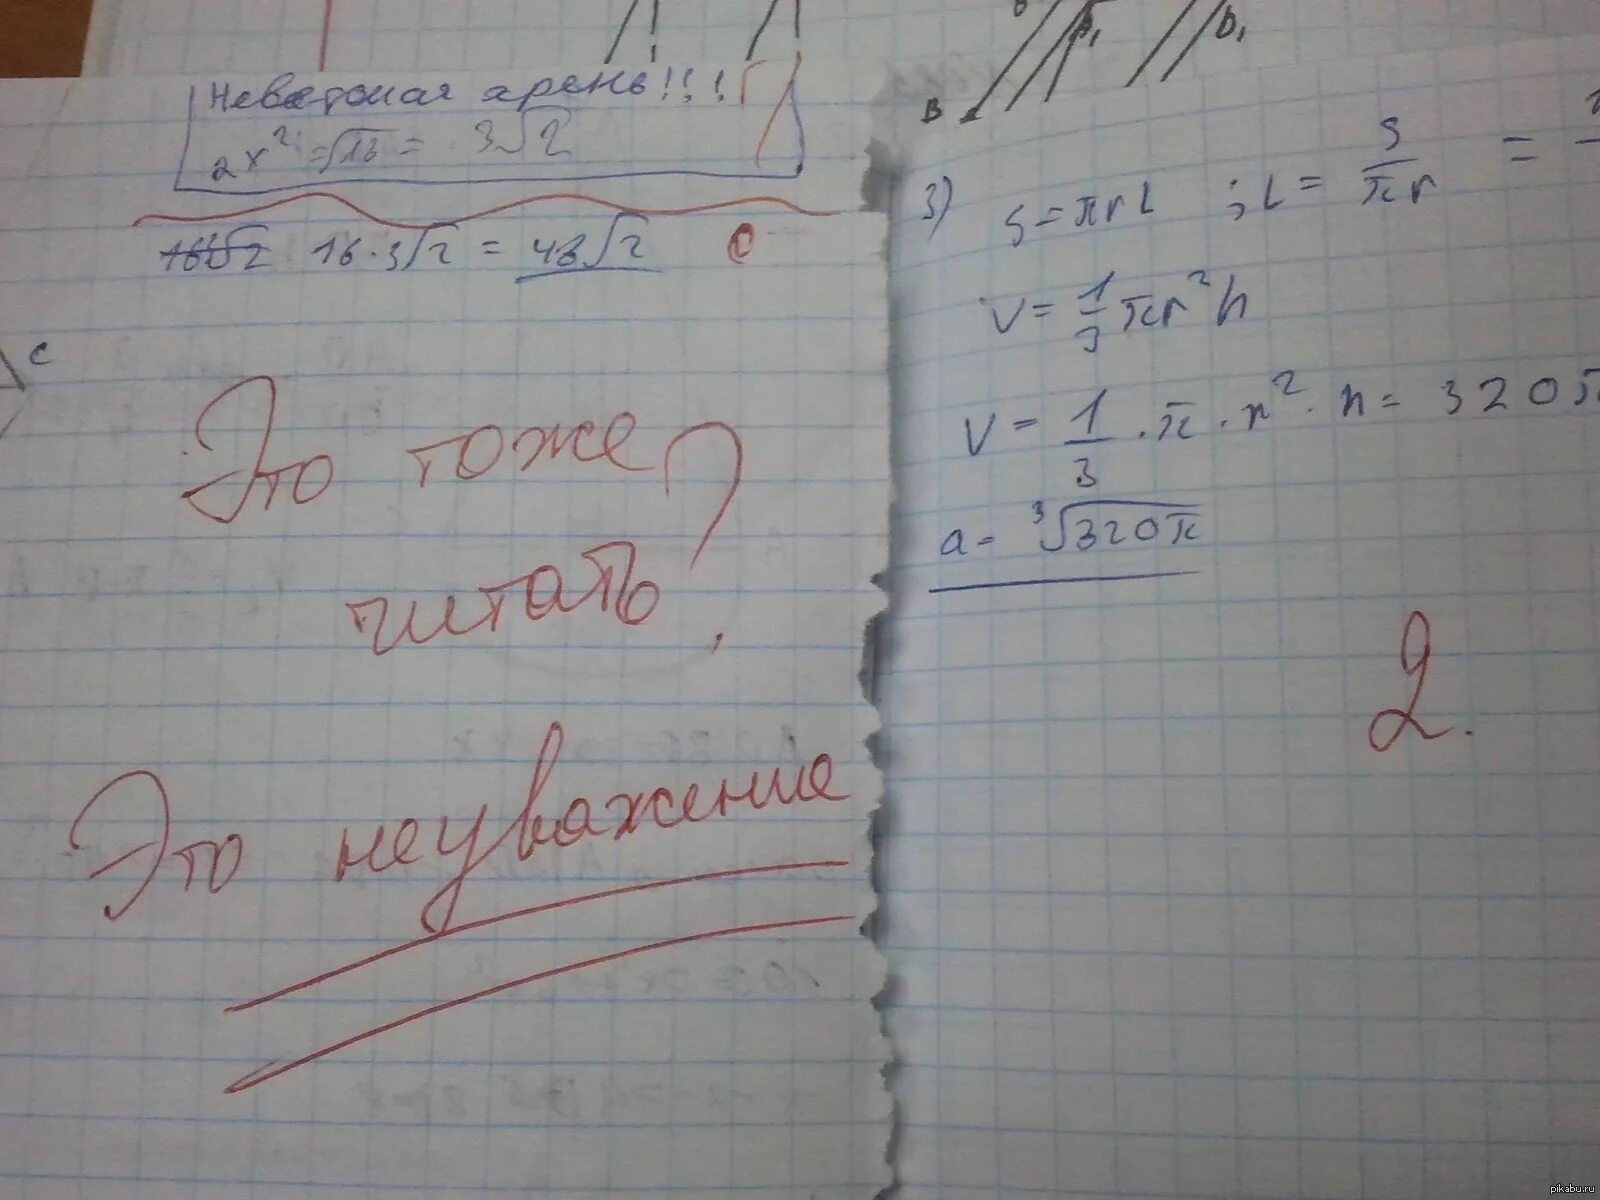 Невстомая хрень!!!
2x² = √18 = 3√2
16·3√2 = 48√2
с
Это тоже
читать?
Это неуважение
B
b₁
3) S = πrL ; L = S/πr =
V = 1/3 πr²h
V = 1/3 · π · r² · h = 320π
a = ³√320π
2.
pikabu.ru